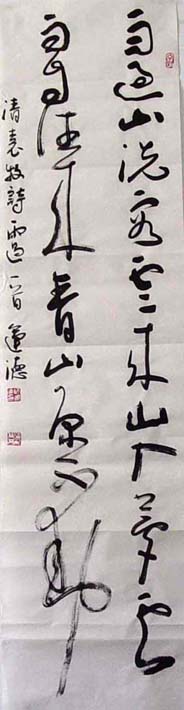 雨過山洗容雲來山入夢雲
雨自往來青山原不動
清袁枚詩雨過一首